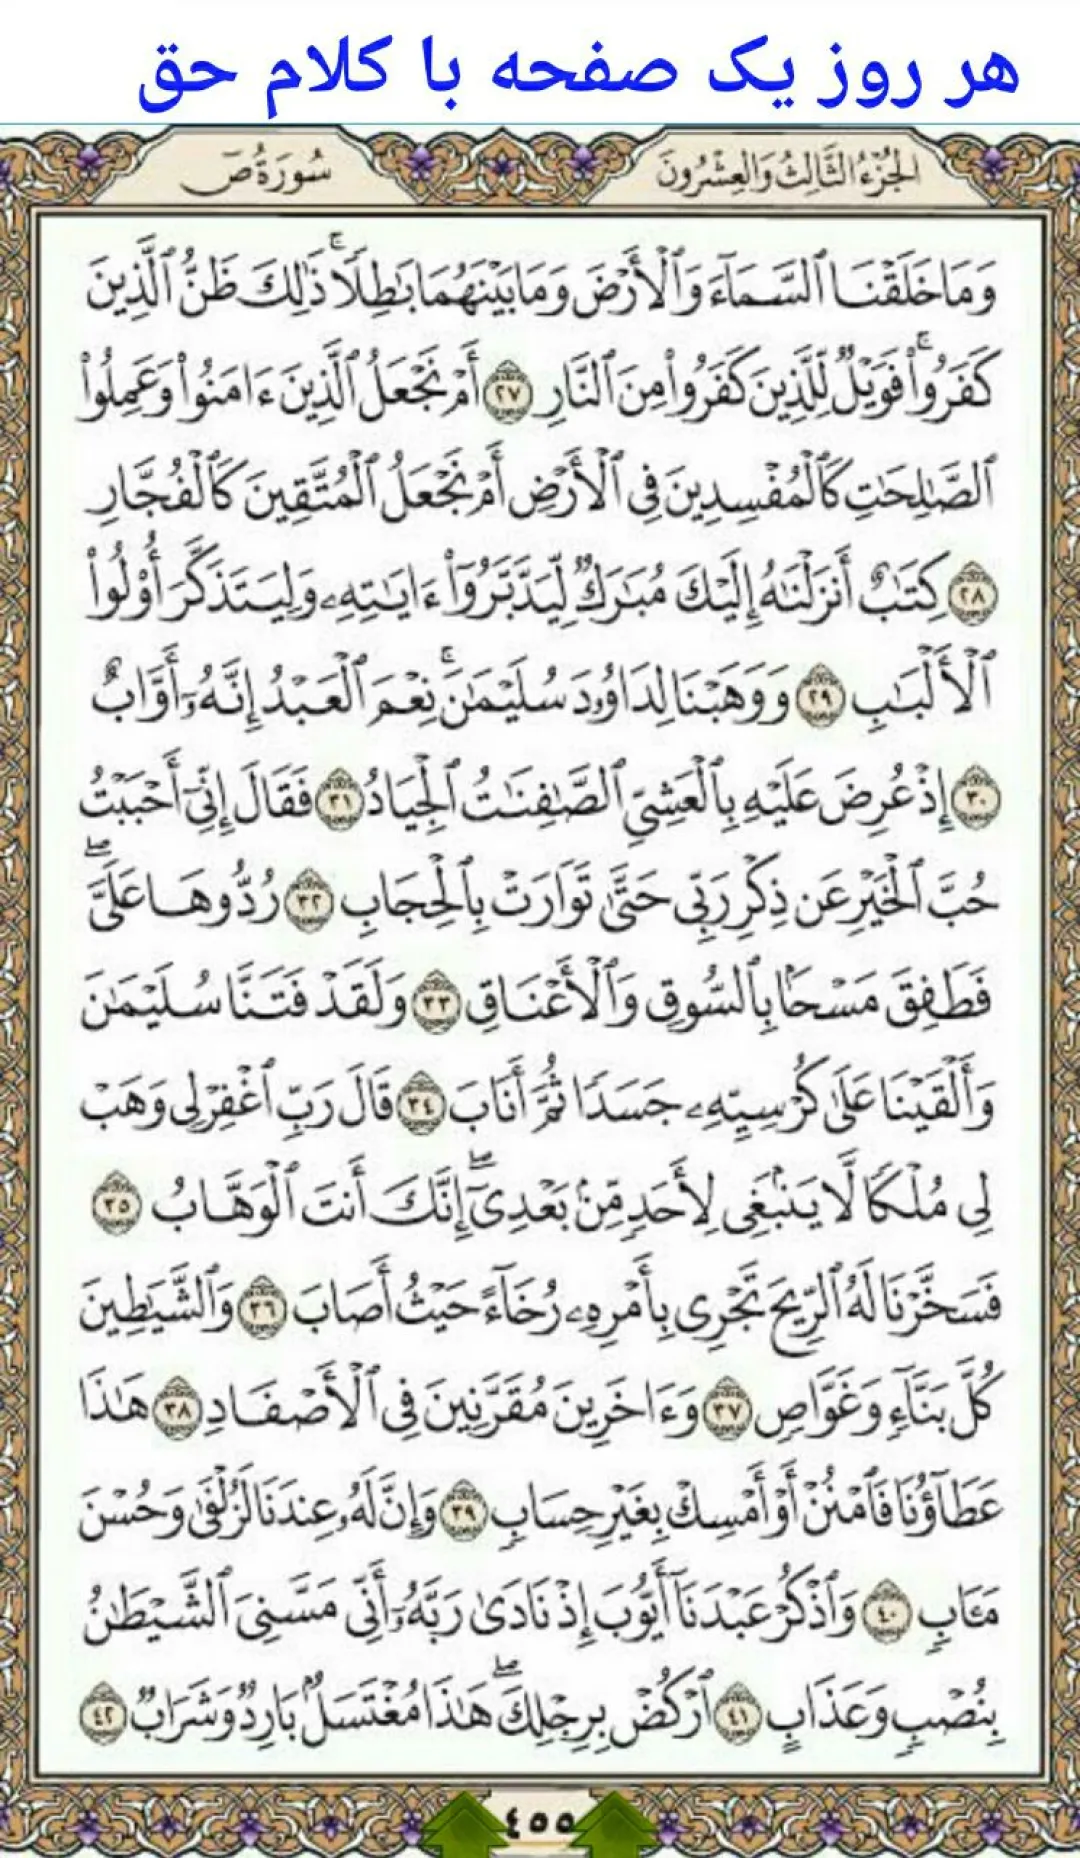 هر روز یک صفحه با کلام حق
الجُزْءُ الثَّالِثُ وَالعِشْرُونَ
سُورَةُ صٓ
وَمَا خَلَقْنَا ٱلسَّمَآءَ وَٱلْأَرْضَ وَمَا بَيْنَهُمَا بَٰطِلًا ۚ ذَٰلِكَ ظَنُّ ٱلَّذِينَ
كَفَرُوا۟ ۚ فَوَيْلٌ لِّلَّذِينَ كَفَرُوا۟ مِنَ ٱلنَّارِ ٢٧ أَمْ نَجْعَلُ ٱلَّذِينَ ءَامَنُوا۟ وَعَمِلُوا۟
ٱلصَّٰلِحَٰتِ كَٱلْمُفْسِدِينَ فِى ٱلْأَرْضِ أَمْ نَجْعَلُ ٱلْمُتَّقِينَ كَٱلْفُجَّارِ
٢٨ كِتَٰبٌ أَنزَلْنَٰهُ إِلَيْكَ مُبَٰرَكٌ لِّيَدَّبَّرُوٓا۟ ءَايَٰتِهِۦ وَلِيَتَذَكَّرَ أُو۟لُوا۟
ٱلْأَلْبَٰبِ ٢٩ وَوَهَبْنَا لِدَاوُۥدَ سُلَيْمَٰنَ ۚ نِعْمَ ٱلْعَبْدُ إِنَّهُۥٓ أَوَّابٌ
٣٠ إِذْ عُرِضَ عَلَيْهِ بِٱلْعَشِىِّ ٱلصَّٰفِنَٰتُ ٱلْجِيَادُ ٣١ فَقَالَ إِنِّىٓ أَحْبَبْتُ
حُبَّ ٱلْخَيْرِ عَن ذِكْرِ رَبِّى حَتَّىٰ تَوَارَتْ بِٱلْحِجَابِ ٣٢ رُدُّوهَا عَلَىَّ ۖ
فَطَفِقَ مَسْحًۢا بِٱلسُّوقِ وَٱلْأَعْنَاقِ ٣٣ وَلَقَدْ فَتَنَّا سُلَيْمَٰنَ
وَأَلْقَيْنَا عَلَىٰ كُرْسِيِّهِۦ جَسَدًا ثُمَّ أَنَابَ ٣٤ قَالَ رَبِّ ٱغْفِرْ لِى وَهَبْ
لِى مُلْكًا لَّا يَنۢبَغِى لِأَحَدٍ مِّنۢ بَعْدِىٓ ۖ إِنَّكَ أَنتَ ٱلْوَهَّابُ ٣٥
فَسَخَّرْنَا لَهُ ٱلرِّيحَ تَجْرِى بِأَمْرِهِۦ رُخَآءً حَيْثُ أَصَابَ ٣٦ وَٱلشَّيَٰطِينَ
كُلَّ بَنَّآءٍ وَغَوَّاصٍ ٣٧ وَءَاخَرِينَ مُقَرَّنِينَ فِى ٱلْأَصْفَادِ ٣٨ هَٰذَا
عَطَآؤُنَا فَٱمْنُنْ أَوْ أَمْسِكْ بِغَيْرِ حِسَابٍ ٣٩ وَإِنَّ لَهُۥ عِندَنَا لَزُلْفَىٰ وَحُسْنَ
مَـَٔابٍ ٤٠ وَٱذْكُرْ عَبْدَنَآ أَيُّوبَ إِذْ نَادَىٰ رَبَّهُۥٓ أَنِّى مَسَّنِىَ ٱلشَّيْطَٰنُ
بِنُصْبٍ وَعَذَابٍ ٤١ ٱرْكُضْ بِرِجْلِكَ ۖ هَٰذَا مُغْتَسَلٌۢ بَارِدٌ وَشَرَابٌ ٤٢
٤٥٥